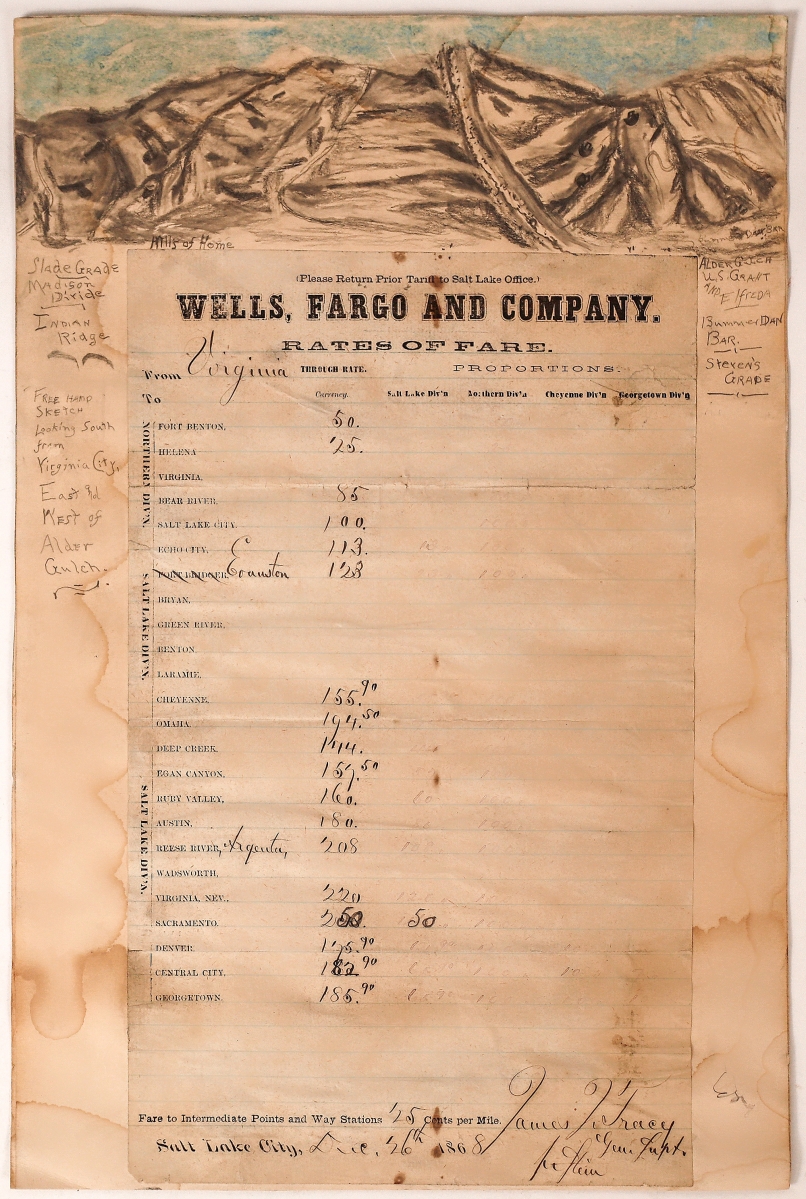 Hills of Home
Slade Grade
Madison
Divide
Indian
Ridge
Free Hand
Sketch
Looking South
from
Virginia City,
East and
West of
Alder
Gulch.
Alder Gulch
U.S. Grant
Elfreda
Bummer Dan
Bar.
Steven's
Grade
(Please Return Prior Tariff to Salt Lake Office.)
WELLS, FARGO AND COMPANY.
RATES OF FARE.
From Virginia THROUGH RATE. PROPORTIONS.
To Currency. Salt Lake Div'n Northern Div'n Cheyenne Div'n Georgetown Div'n
NORTHERN DIV'N.
FORT BENTON, 50.
HELENA 25.
VIRGINIA.
BEAR RIVER, 85
SALT LAKE CITY. 100.
ECHO CITY. 113.
SALT LAKE DIV'N.
FORT BRIDGER, Evanston 123
BRYAN,
GREEN RIVER,
BENTON,
LARAMIE,
CHEYENNE, 155.90
OMAHA, 194.50
DEEP CREEK. 144.
EGAN CANYON, 157.50
SALT LAKE DIV'N.
RUBY VALLEY, 160.
AUSTIN, 180.
REESE RIVER, Argenta, 208
WADSWORTH,
VIRGINIA, NEV., 220
SACRAMENTO. 250. 50
DENVER. 175.90
CENTRAL CITY, 182.90
GEORGETOWN. 185.90
Fare to Intermediate Points and Way Stations 25 Cents per Mile.
James Tracy
Salt Lake City, Dec. 26th 1868 Gen. Supt.